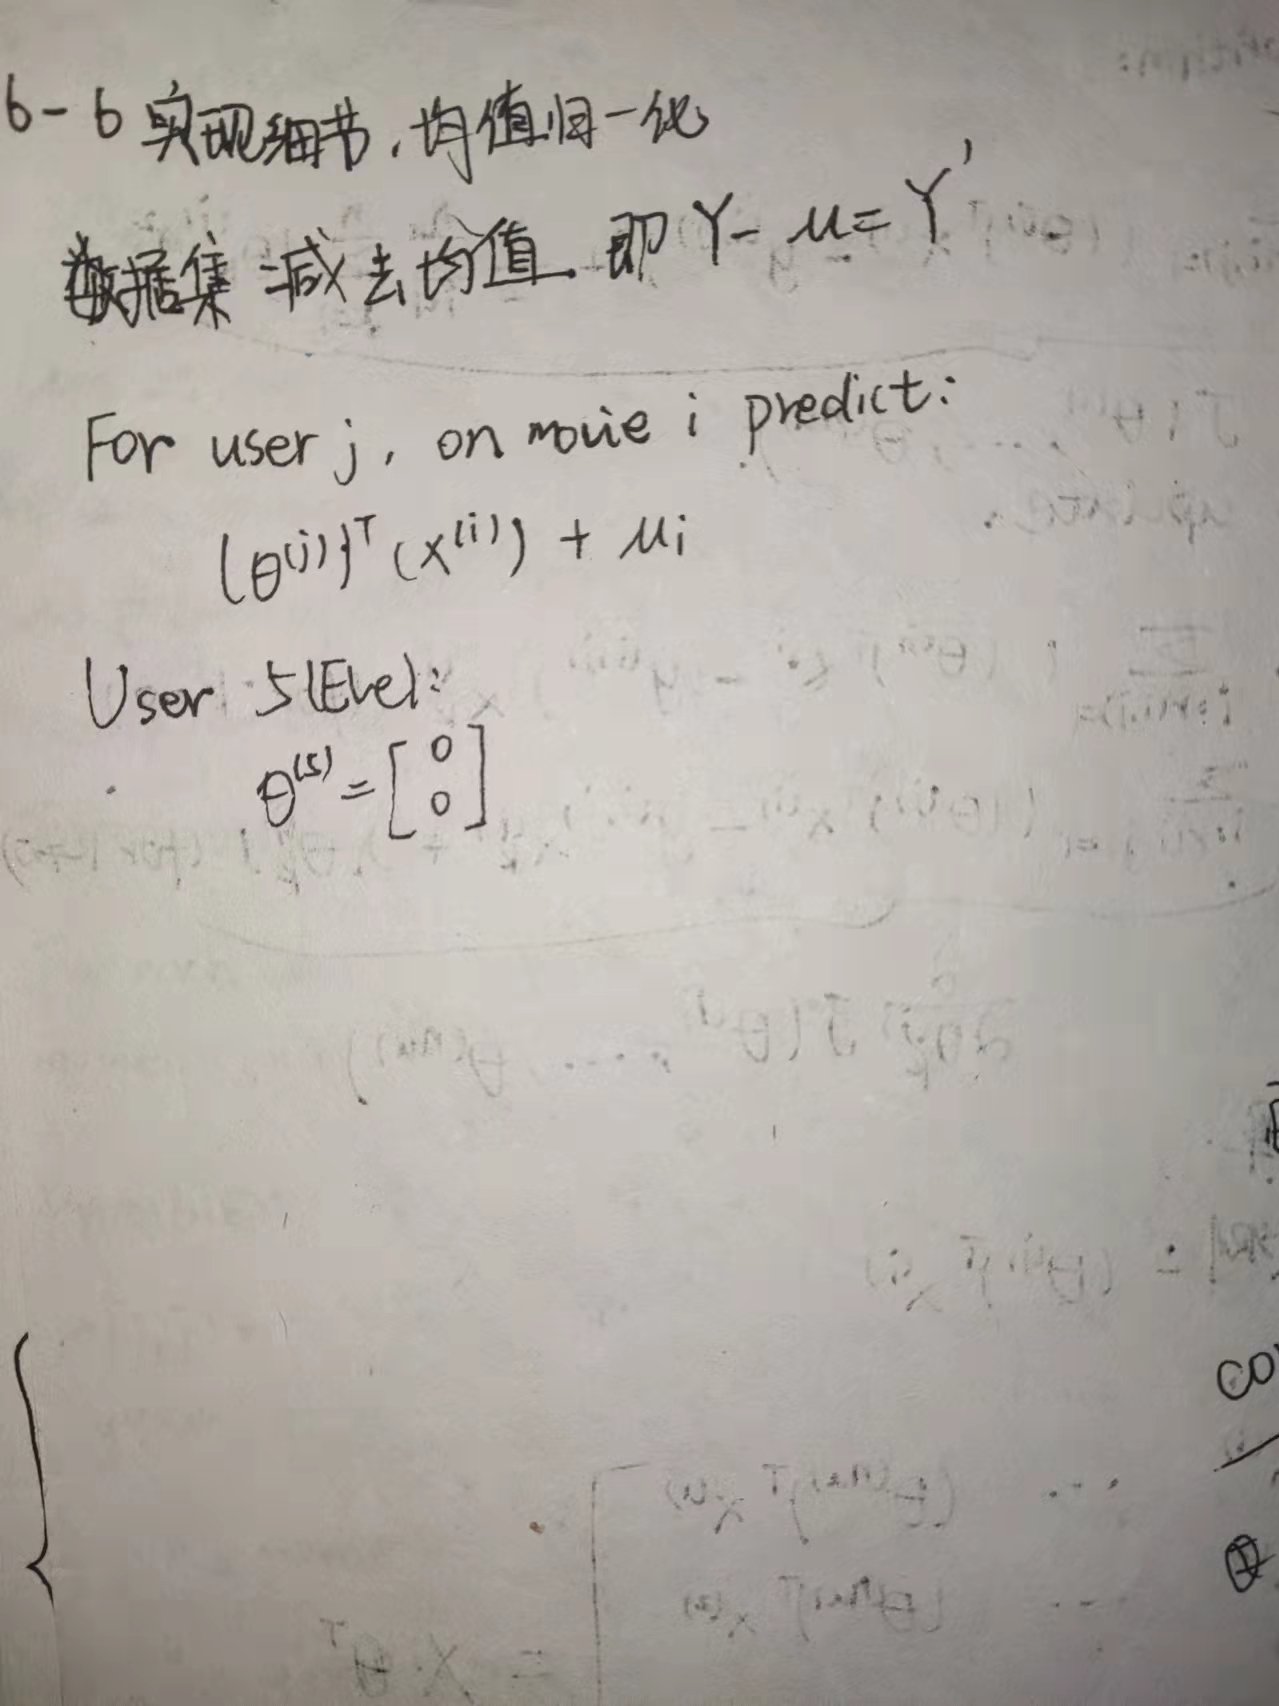 6-6 实现细节，均值归一化
数据集 减去均值. 即 Y - μ = Y'
For user j, on movie i predict:
(θ^(j))^T (x^(i)) + μi
User 5(Eve):
θ^(5) = [0
0]